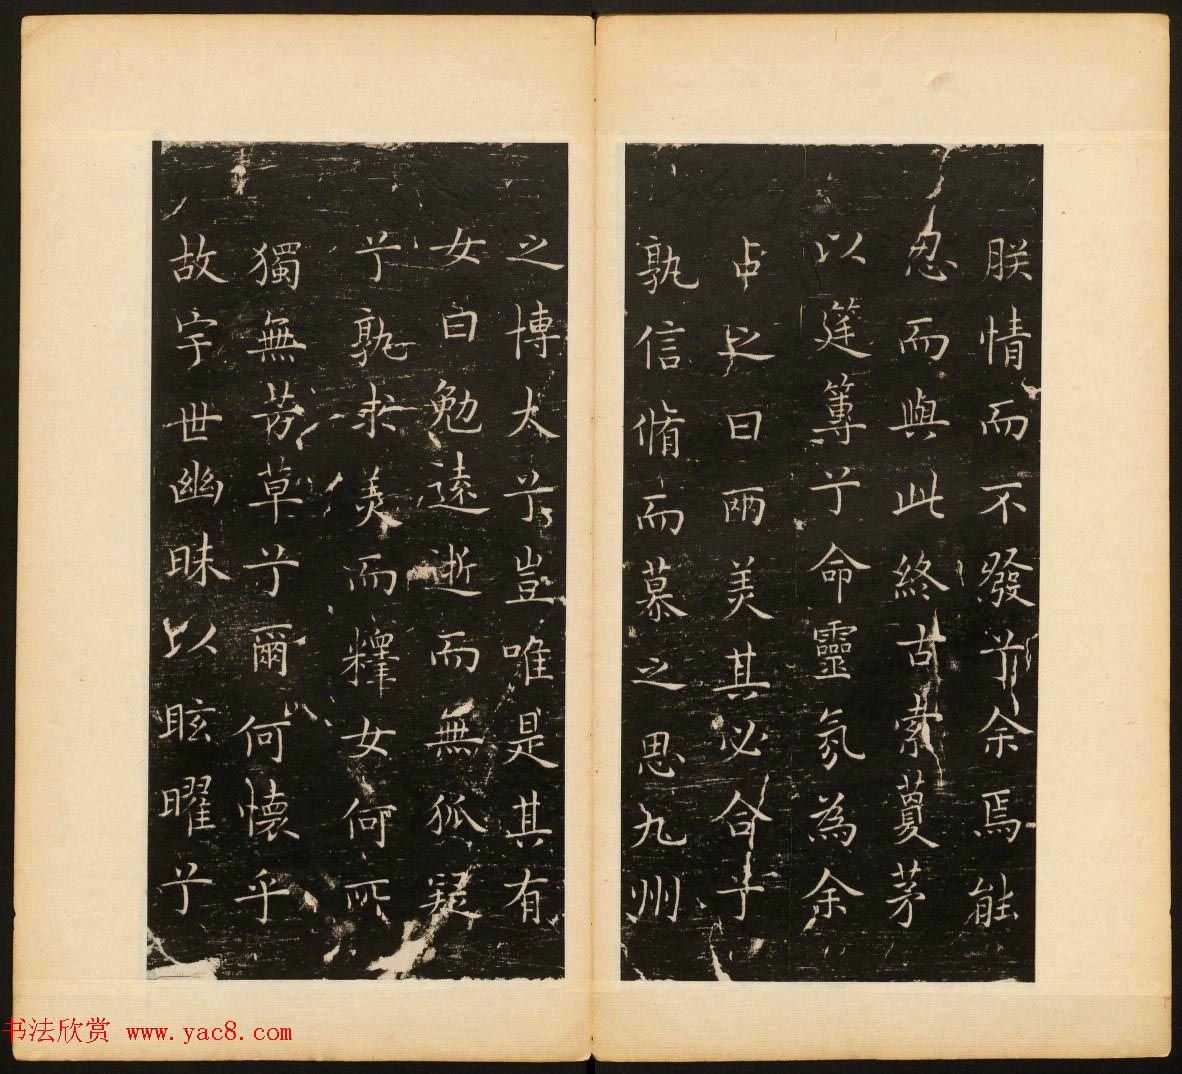 朕情而不發兮余焉能
忍而與此終古索藑茅
以筳篿兮命靈氛為余
占之曰兩美其必合兮
孰信脩而慕之思九州
之博大兮豈唯是其有
女曰勉遠逝而無狐疑
兮孰求美而釋女何所
獨無芳草兮爾何懷乎
故宇世幽昧以眩曜兮
书法欣赏 www.yac8.com